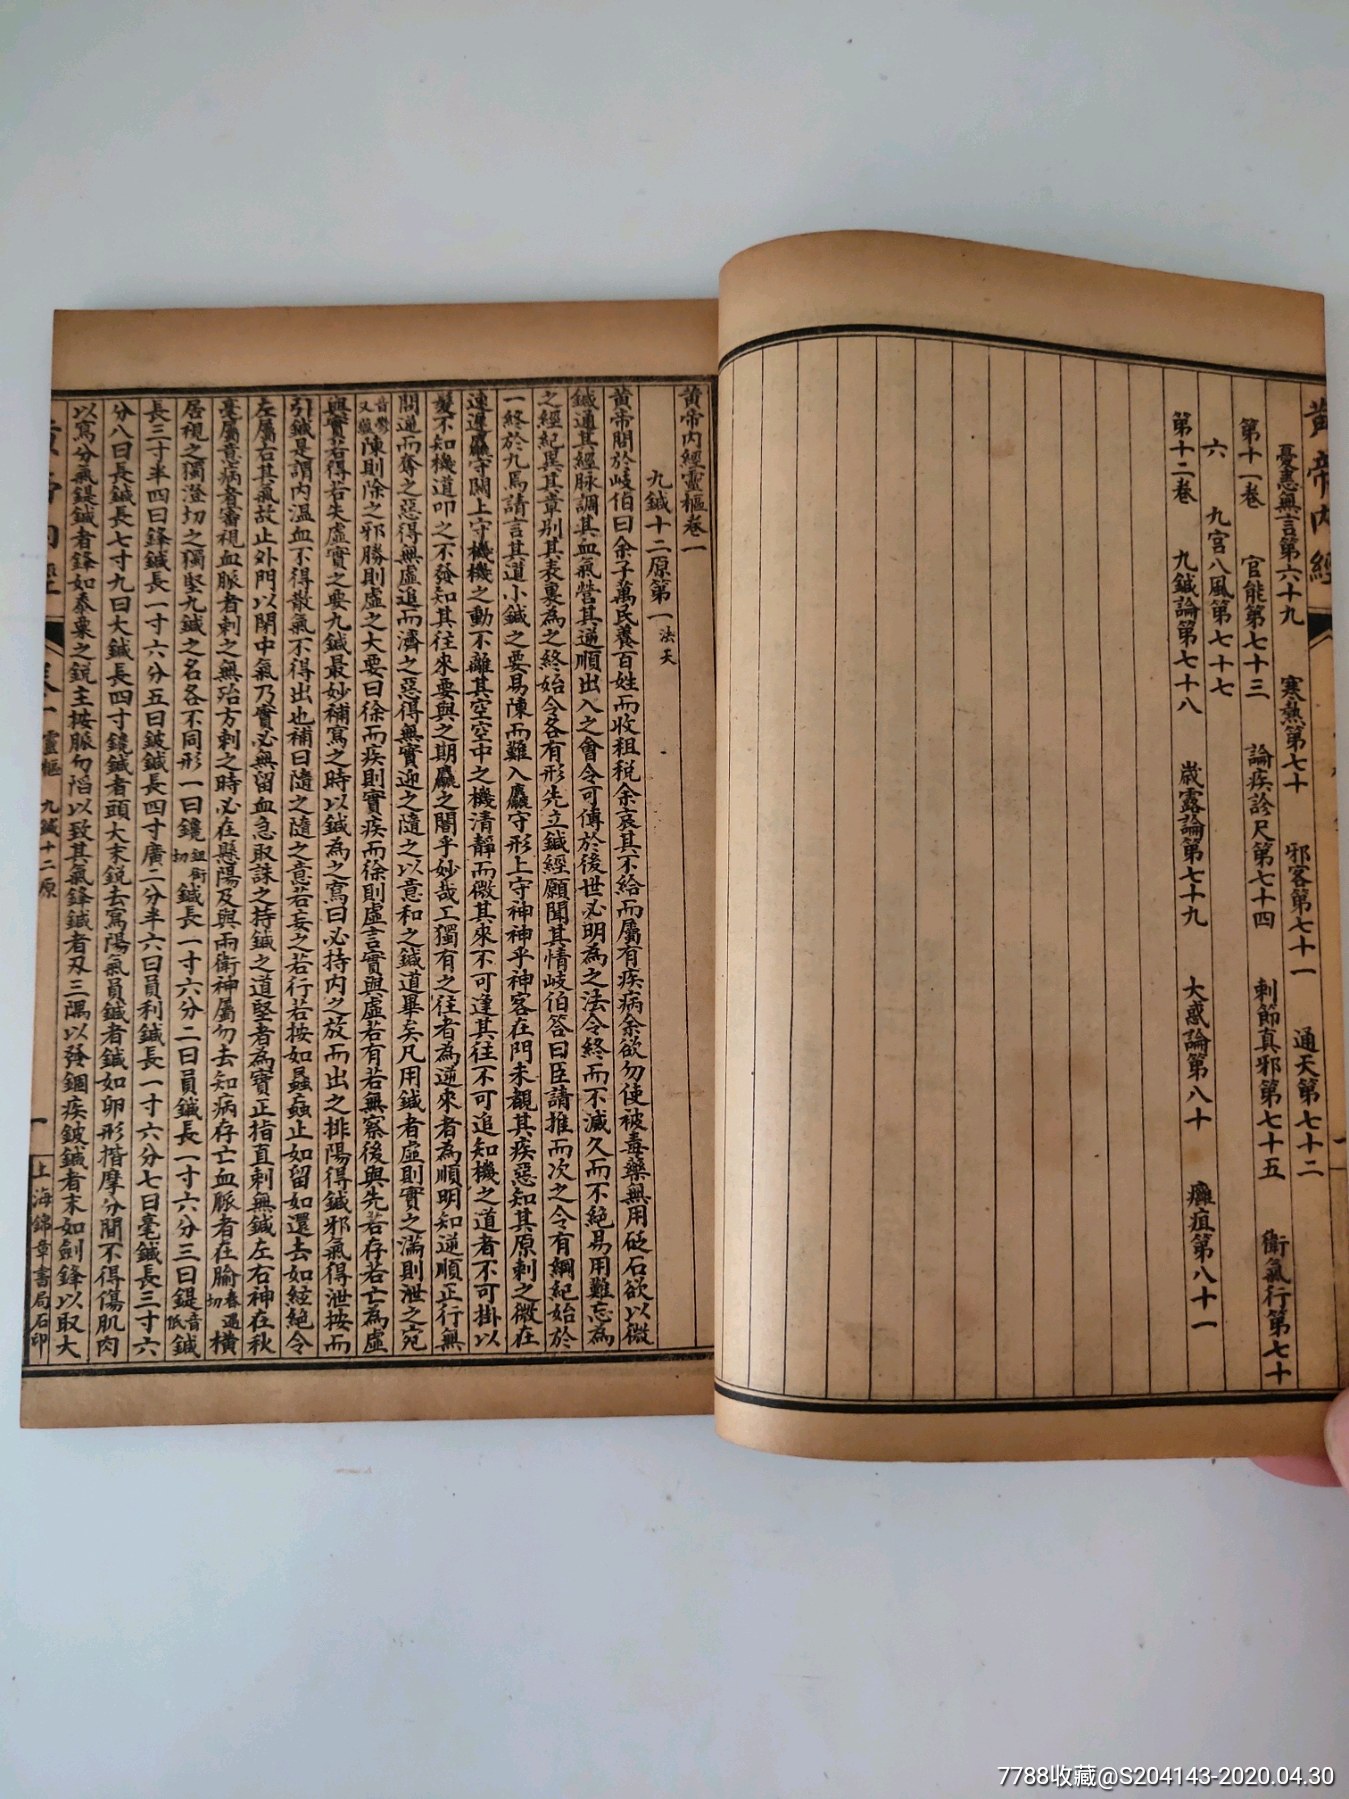 黄帝內經
憂恚無言第六十九 寒熱第七十 邪客第七十一 通天第七十二
第十一卷 官能第七十三 論疾診尺第七十四 刺節真邪第七十五 衛氣行第七十
六 九宮八風第七十七
第十二卷 九鍼論第七十八 歲露論第七十九 大惑論第八十 癰疽第八十一
黃帝內經靈樞卷一
九鍼十二原第一 法天
黃帝問於岐伯曰余子萬民養百姓而收租稅余哀其不給而屬有疾病余欲勿使被毒藥無用砭石欲以微
鍼通其經脉調其血氣營其逆順出入之會令可傳於後世必明為之法令終而不滅久而不絕易用難忘為
之經紀異其章别其表裏為之終始令各有形先立鍼經願聞其情岐伯答曰臣請推而次之令有綱紀始於
一終於九焉請言其道小鍼之要易陳而難入麤守形上守神神乎神客在門未覩其疾惡知其原刺之微在
速遲麤守關上守機機之動不離其空空中之機清靜而微其來不可逢其往不可追知機之道者不可掛以
髮不知機道叩之不發知其往來要與之期麤之闇乎妙哉工獨有之往者為逆來者為順明知逆順正行無
問逆而奪之惡得無虛追而濟之惡得無實迎之隨之以意和之鍼道畢矣凡用鍼者虛則實之滿則泄之宛
陳則除之邪勝則虛之大要曰徐而疾則實疾而徐則虛言實與虛若有若無察後與先若存若亡為虛
與實若得若失虛實之要九鍼最妙補寫之時以鍼為之寫曰必持內之放而出之排陽得鍼邪氣得泄按而
引鍼是謂內溫血不得散氣不得出也補曰隨之隨之意若妄之若行若按如蟁蝱止如留如還去如絃絕令
左屬右其氣故止外門以閉中氣乃實必無留血急取誅之持鍼之道堅者為寶正指直刺無鍼左右神在秋
毫屬意病者審視血脈者刺之無殆方刺之時必在懸陽及與兩衛神屬勿去知病存亡血脈者在腧春遇切橫
居視之獨澄切之獨堅九鍼之名各不同形一曰鑱鉏銜切鍼長一寸六分二曰員鍼長一寸六分三曰鍉音低鍼
長三寸半四曰鋒鍼長一寸六分五曰鈹鍼長四寸廣二分半六曰員利鍼長一寸六分七曰毫鍼長三寸六
分八曰長鍼長七寸九曰大鍼長四寸鑱鍼者頭大末銳去寫陽氣員鍼者鍼如卵形揩摩分間不得傷肌肉
以寫分氣鍉鍼者鋒如黍粟之銳主按脈勿陷以致其氣鋒鍼者刃三隅以發錮疾鈹鍼者末如劍鋒以取大
卷一 靈樞 九鍼十二原 一 上海錦章書局石印
7788收藏@S204143-2020.04.30